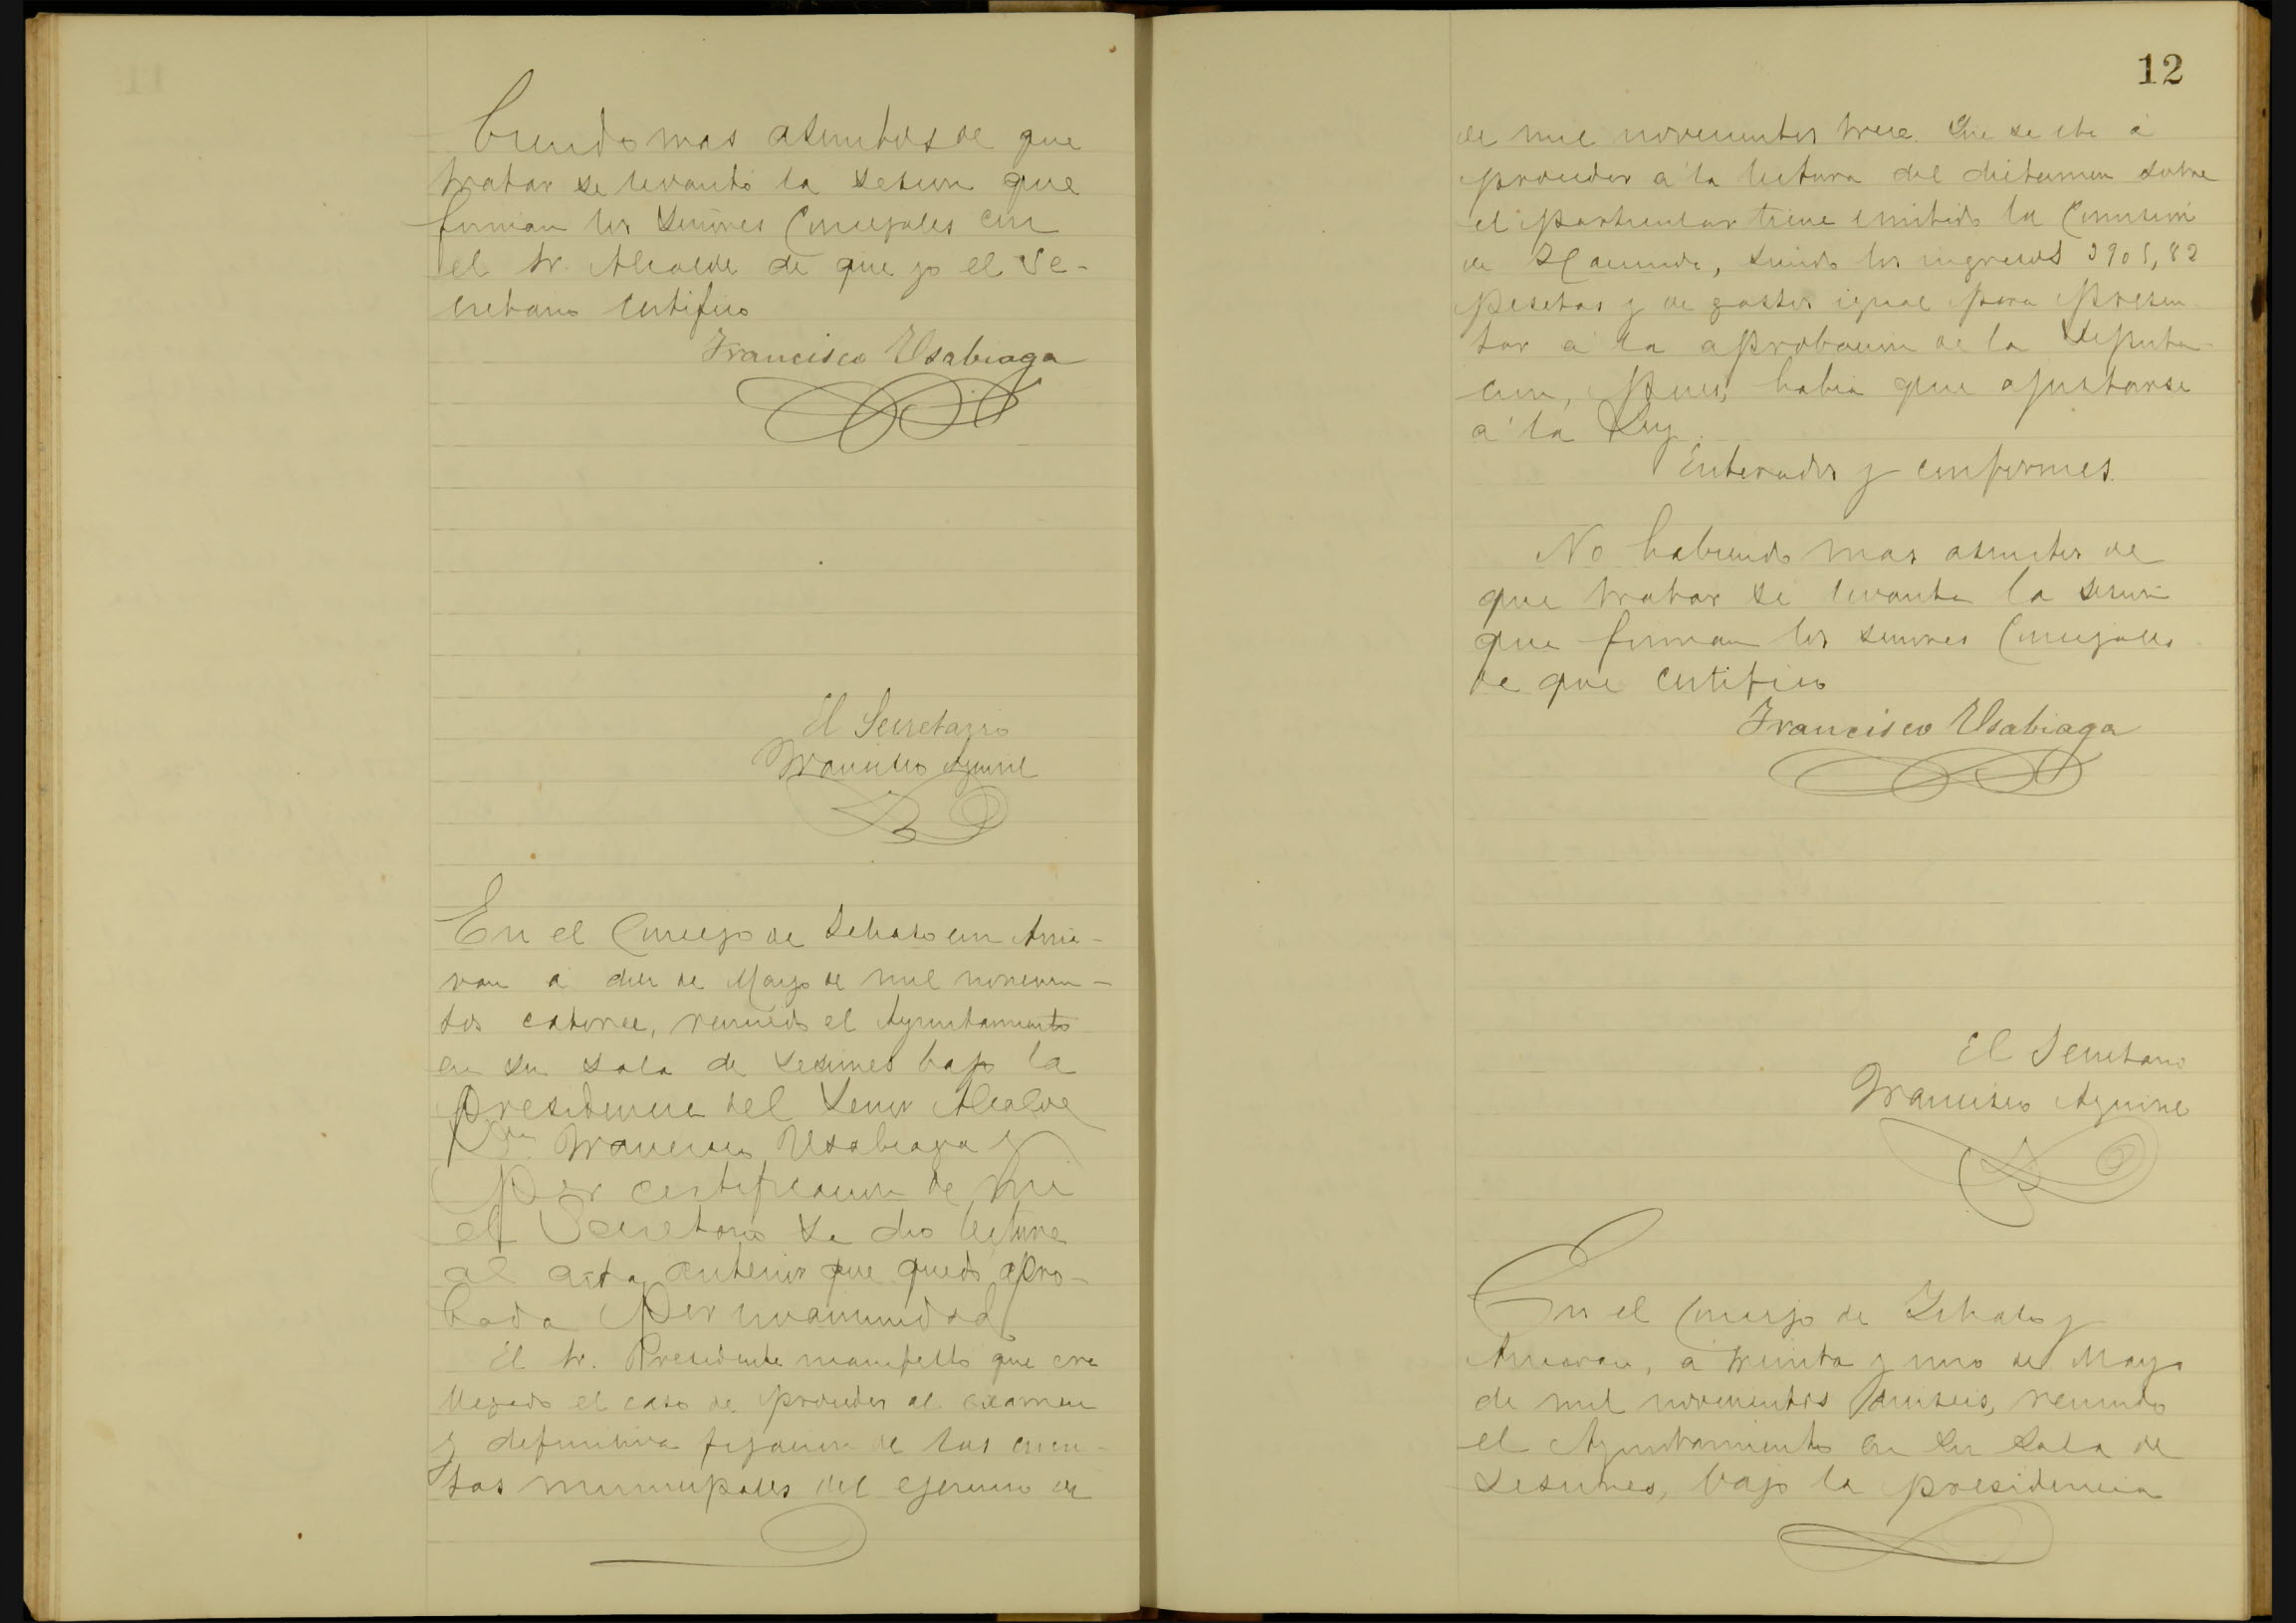 biendo mas asuntos de que
tratar se levantó la sesion que
firman los Señores Concejales con
el Sr. Alcalde de que yo el Se-
cretario certifico
Francisco Usabiaga
El Secretario
Francisco Aguirre
En el Concejo de
a diez de Mayo de mil novecien-
tos catorce, reunido el Ayuntamiento
en su sala de sesiones bajo la
presidencia del Senor Alcalde
Don Francisco Usabiaga y
Por certificacion de mi
el Secretario se dio lectura
al acta anterior que quedo apro-
bada por unanimidad
El Sr. Presidente manifesto que era
llegado el caso de proceder al examen
y definitiva fijacion de las cuen-
tas municipales del ejercicio de
12
de mil novecientos trece. Que se iba á
proceder a la lectura del dictamen sobre
el particular tiene emitido la Comision
de Hacienda, siendo los ingresos 2905,82
pesetas y de gastos igual para presen-
tar a la aprobacion de la Diputa-
cion, pues, habia que ajustarse
a la Ley.
Enterados y conformes.
No habiendo mas asuntos de
que tratar se levanta la sesion
que firman los senores Concejales
de que certifico
Francisco Usabiaga
El Secretario
Francisco Aguirre
En el Concejo de y
á treinta y uno de Mayo
de mil novecientos reunido
el Ayuntamiento en su Sala de
Sesiones, bajo la presidencia